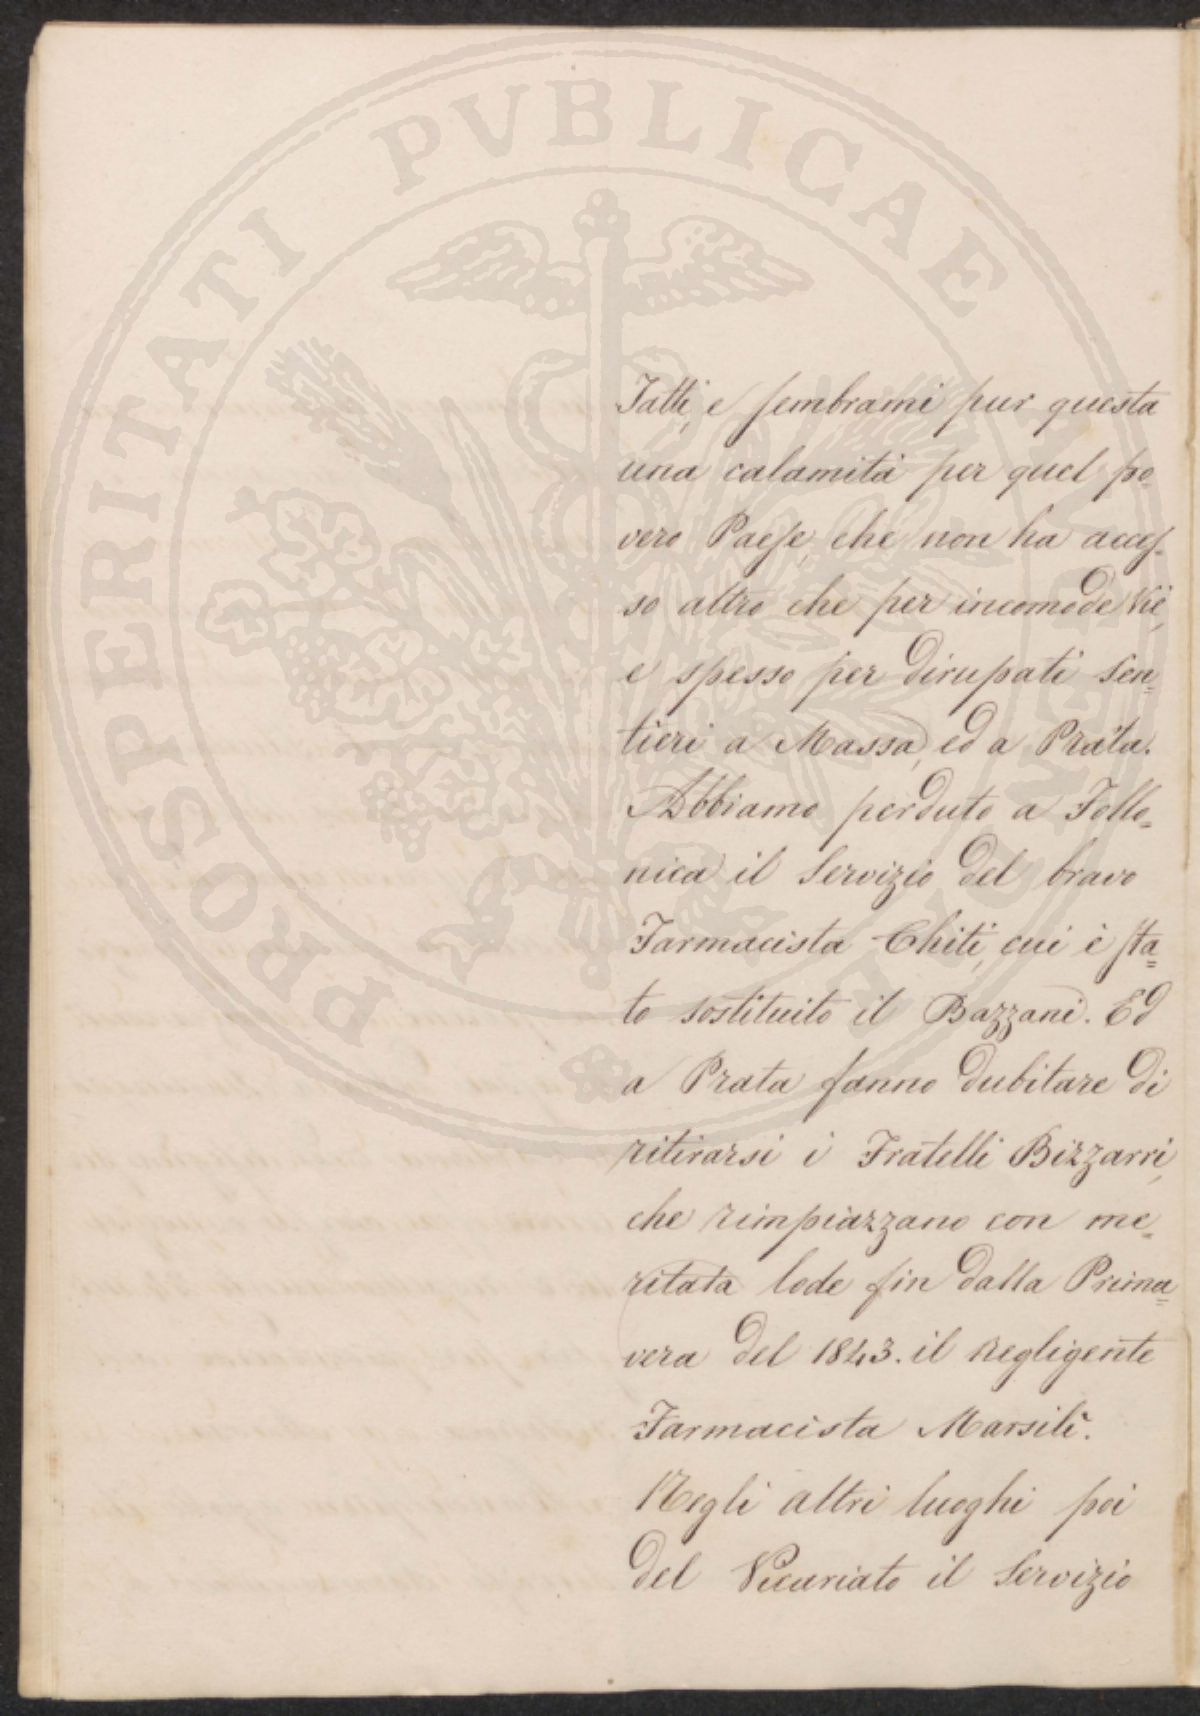 Fatti, e sembrami pur questa
una calamità per quel po=
vero Paese, che non ha acces=
so altro che per incomode Vie,
e spesso per dirupati Sen=
tieri a Massa, ed a Prata.
Abbiamo perduto a Follo=
nica il Servizio del bravo
Farmacista Chiti, cui è sta=
to sostituito il Bazzani. Ed
a Prata fanno dubitare di
ritirarsi i Fratelli Bizzarri,
che rimpiazzano con me=
ritata lode fin dalla Prima=
vera del 1843. il negligente
Farmacista Marsili.
Negli altri luoghi poi
del Vicariato il Servizio
PROSPERITATI PVBLICAE